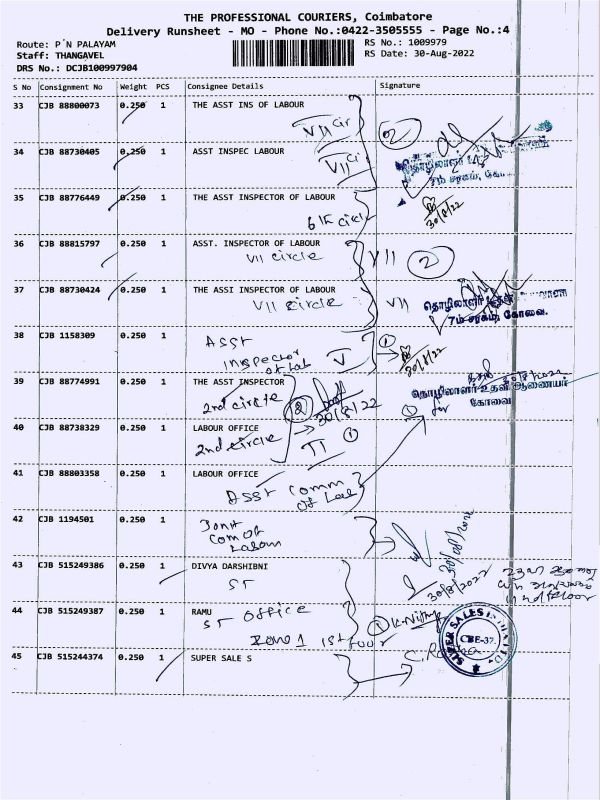 THE PROFESSIONAL COURIERS, Coimbatore
Delivery Runsheet - MO - Phone No.:0422-3505555 - Page No.:4
Route: P'N PALAYAM
RS No.: 1009979
Staff: THANGAVEL
RS Date: 30-Aug-2022
DRS No.: DCJB100997904
S No Consignment No Weight PCS Consignee Details Signature
33 CJB 88800073 0.250 1 THE ASST INS OF LABOUR
VII Cir 2
34 CJB 88730405 0.250 1 ASST INSPEC LABOUR
VII Ci
தொழிலாளர்
7ம் சரகம், கோ
35 CJB 88776449 0.250 1 THE ASST INSPECTOR OF LABOUR
6th circle 30/8/22
36 CJB 88815797 0.250 1 ASST. INSPECTOR OF LABOUR
VII circle VII 2
37 CJB 88730424 0.250 1 THE ASSI INSPECTOR OF LABOUR
VII circle VII
தொழிலாளர்
7ம் சரகம், கோவை.
38 CJB 1158309 0.250 1 Asst
Inspector
of Lab V 1 30/8/22
39 CJB 88774991 0.250 1 THE ASST INSPECTOR
2nd circle 2 30/8/22
தொழிலாளர் உதவி ஆணையர்
கோவை
for
40 CJB 88738329 0.250 1 LABOUR OFFICE
2nd circle II 1
41 CJB 88803358 0.250 1 LABOUR OFFICE
Asst Comm
of Lab
42 CJB 1194501 0.250 1 Joint
Com of
Labour
30/08/2022
43 CJB 515249386 0.250 1 DIVYA DARSHIBNI
ST
30/8/2022
44 CJB 515249387 0.250 1 RAMU
ST office
Zone 1 1st floor 1
SUPER SALES INDIA LTD.
CBE-37.
45 CJB 515244374 0.250 1 SUPER SALE S